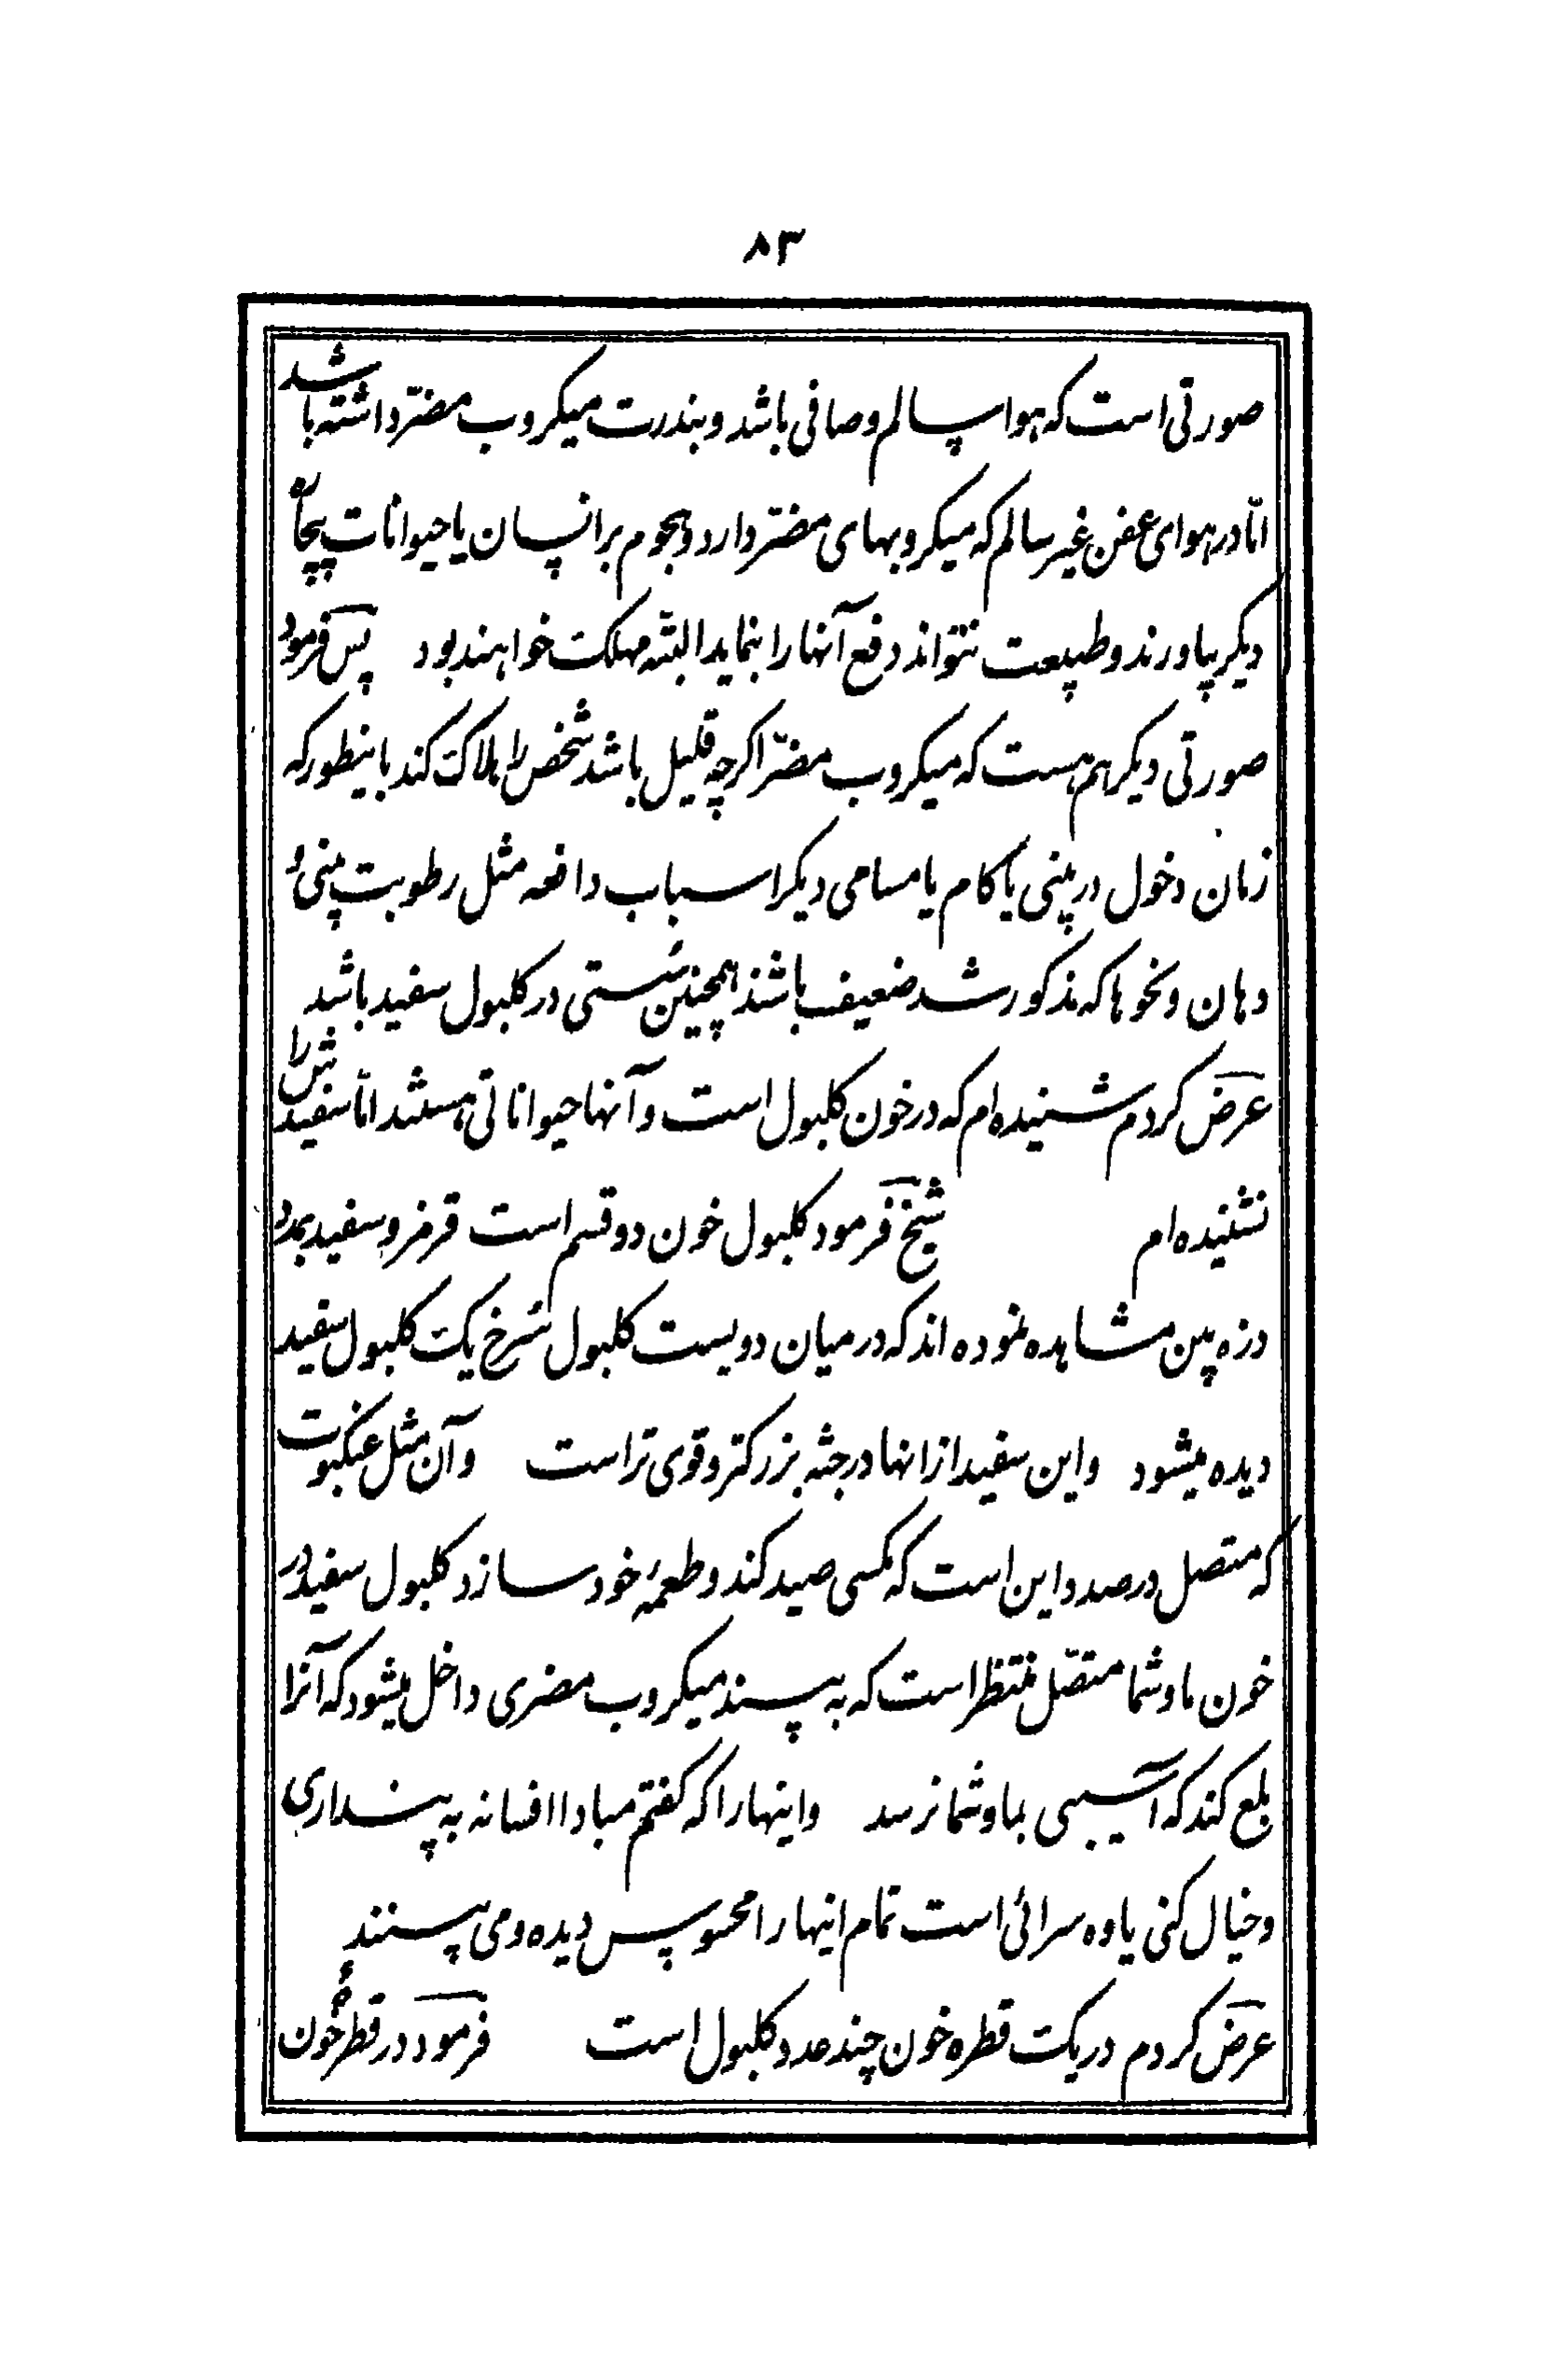 ۸۳
صورتی است که هوا سالم و صافی باشد و بندرت میکروب مضرّ داشته باشد
امّا در هوای عفن غیر سالم که میکروبهای مضرّ دارد و هجوم بر انسان یا حیوانات بیچاره
دیکر بیاورند و طبیعت نتواند دفع آنها را بنماید البتّه مهلک خواهند بود پس فرمود
صورتی دیکر هم هست که میکروب مضرّ اکرچه قلیل باشد شخص را هلاک کند باینطور که
زمان دخول در بینی یا کام یا مسامی دیکر اسباب دافعه مثل رطوبت بینی و
دهان و نحوها که مذکور شد ضعیف باشند همچنین سُستی در کلبول سفید باشد
عرض کردم شنیده‌ام که در خون کلبول است و آنها حیواناتی هستند امّا سفیدش را
نشنیده‌ام شیخ فرمود کلبول خون دو قسم است قرمز و سفید بمدد
ذره بین مشاهده نموده‌اند که در میان دویست کلبول سُرخ یک کلبول سفید
دیده میشود و این سفید از انها در جثّه بزرکتر و قوی تر است و آن مثل عنکبوت
که متصل درصدد این است که مکسی صید کند و طعمهٔ خود سازد کلبول سفید در
خون ما و شما متصّل منتظر است که به بیند میکروب مضری داخل میشود که آنرا
بلع کند که آسیبی بما و شما نرسد و اینها را که کفتم مبادا افسانه به پنداری
و خیال کنی یاوه سرائی است تمام اینها را محسوس دیده و می بینند
عرض کردم در یک قطره خون چند عدد کلبول است فرمود در قطرهٔ خون